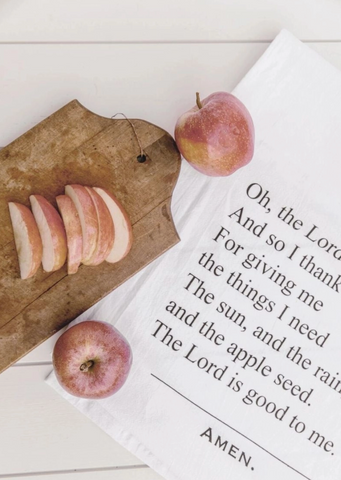 Oh, the Lord
And so I thank
For giving me
the things I need
The sun, and the rain
and the apple seed.
The Lord is good to me.
AMEN.